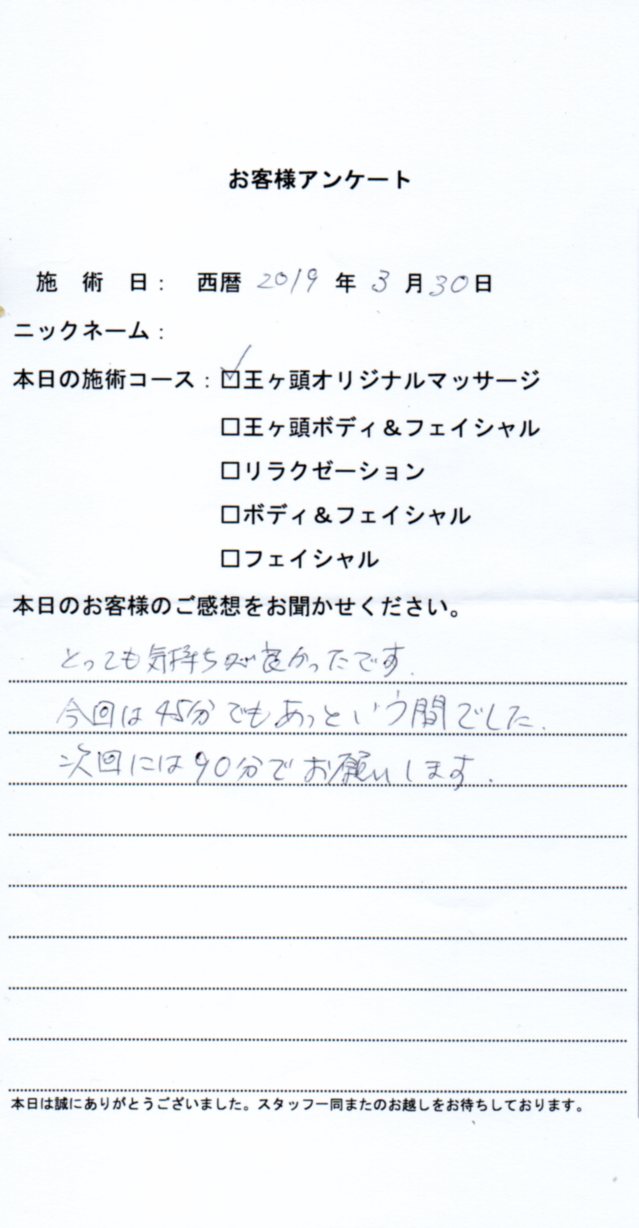 お客様アンケート
施 術 日： 西暦 2019 年 3 月 30 日
ニックネーム：
本日の施術コース：☑王ヶ頭オリジナルマッサージ
□王ヶ頭ボディ＆フェイシャル
□リラクゼーション
□ボディ＆フェイシャル
□フェイシャル
本日のお客様のご感想をお聞かせください。
とっても気持ちが良かったです.
今回は45分でもあっという間でした.
次回には90分でお願いします.
本日は誠にありがとうございました。スタッフ一同またのお越しをお待ちしております。